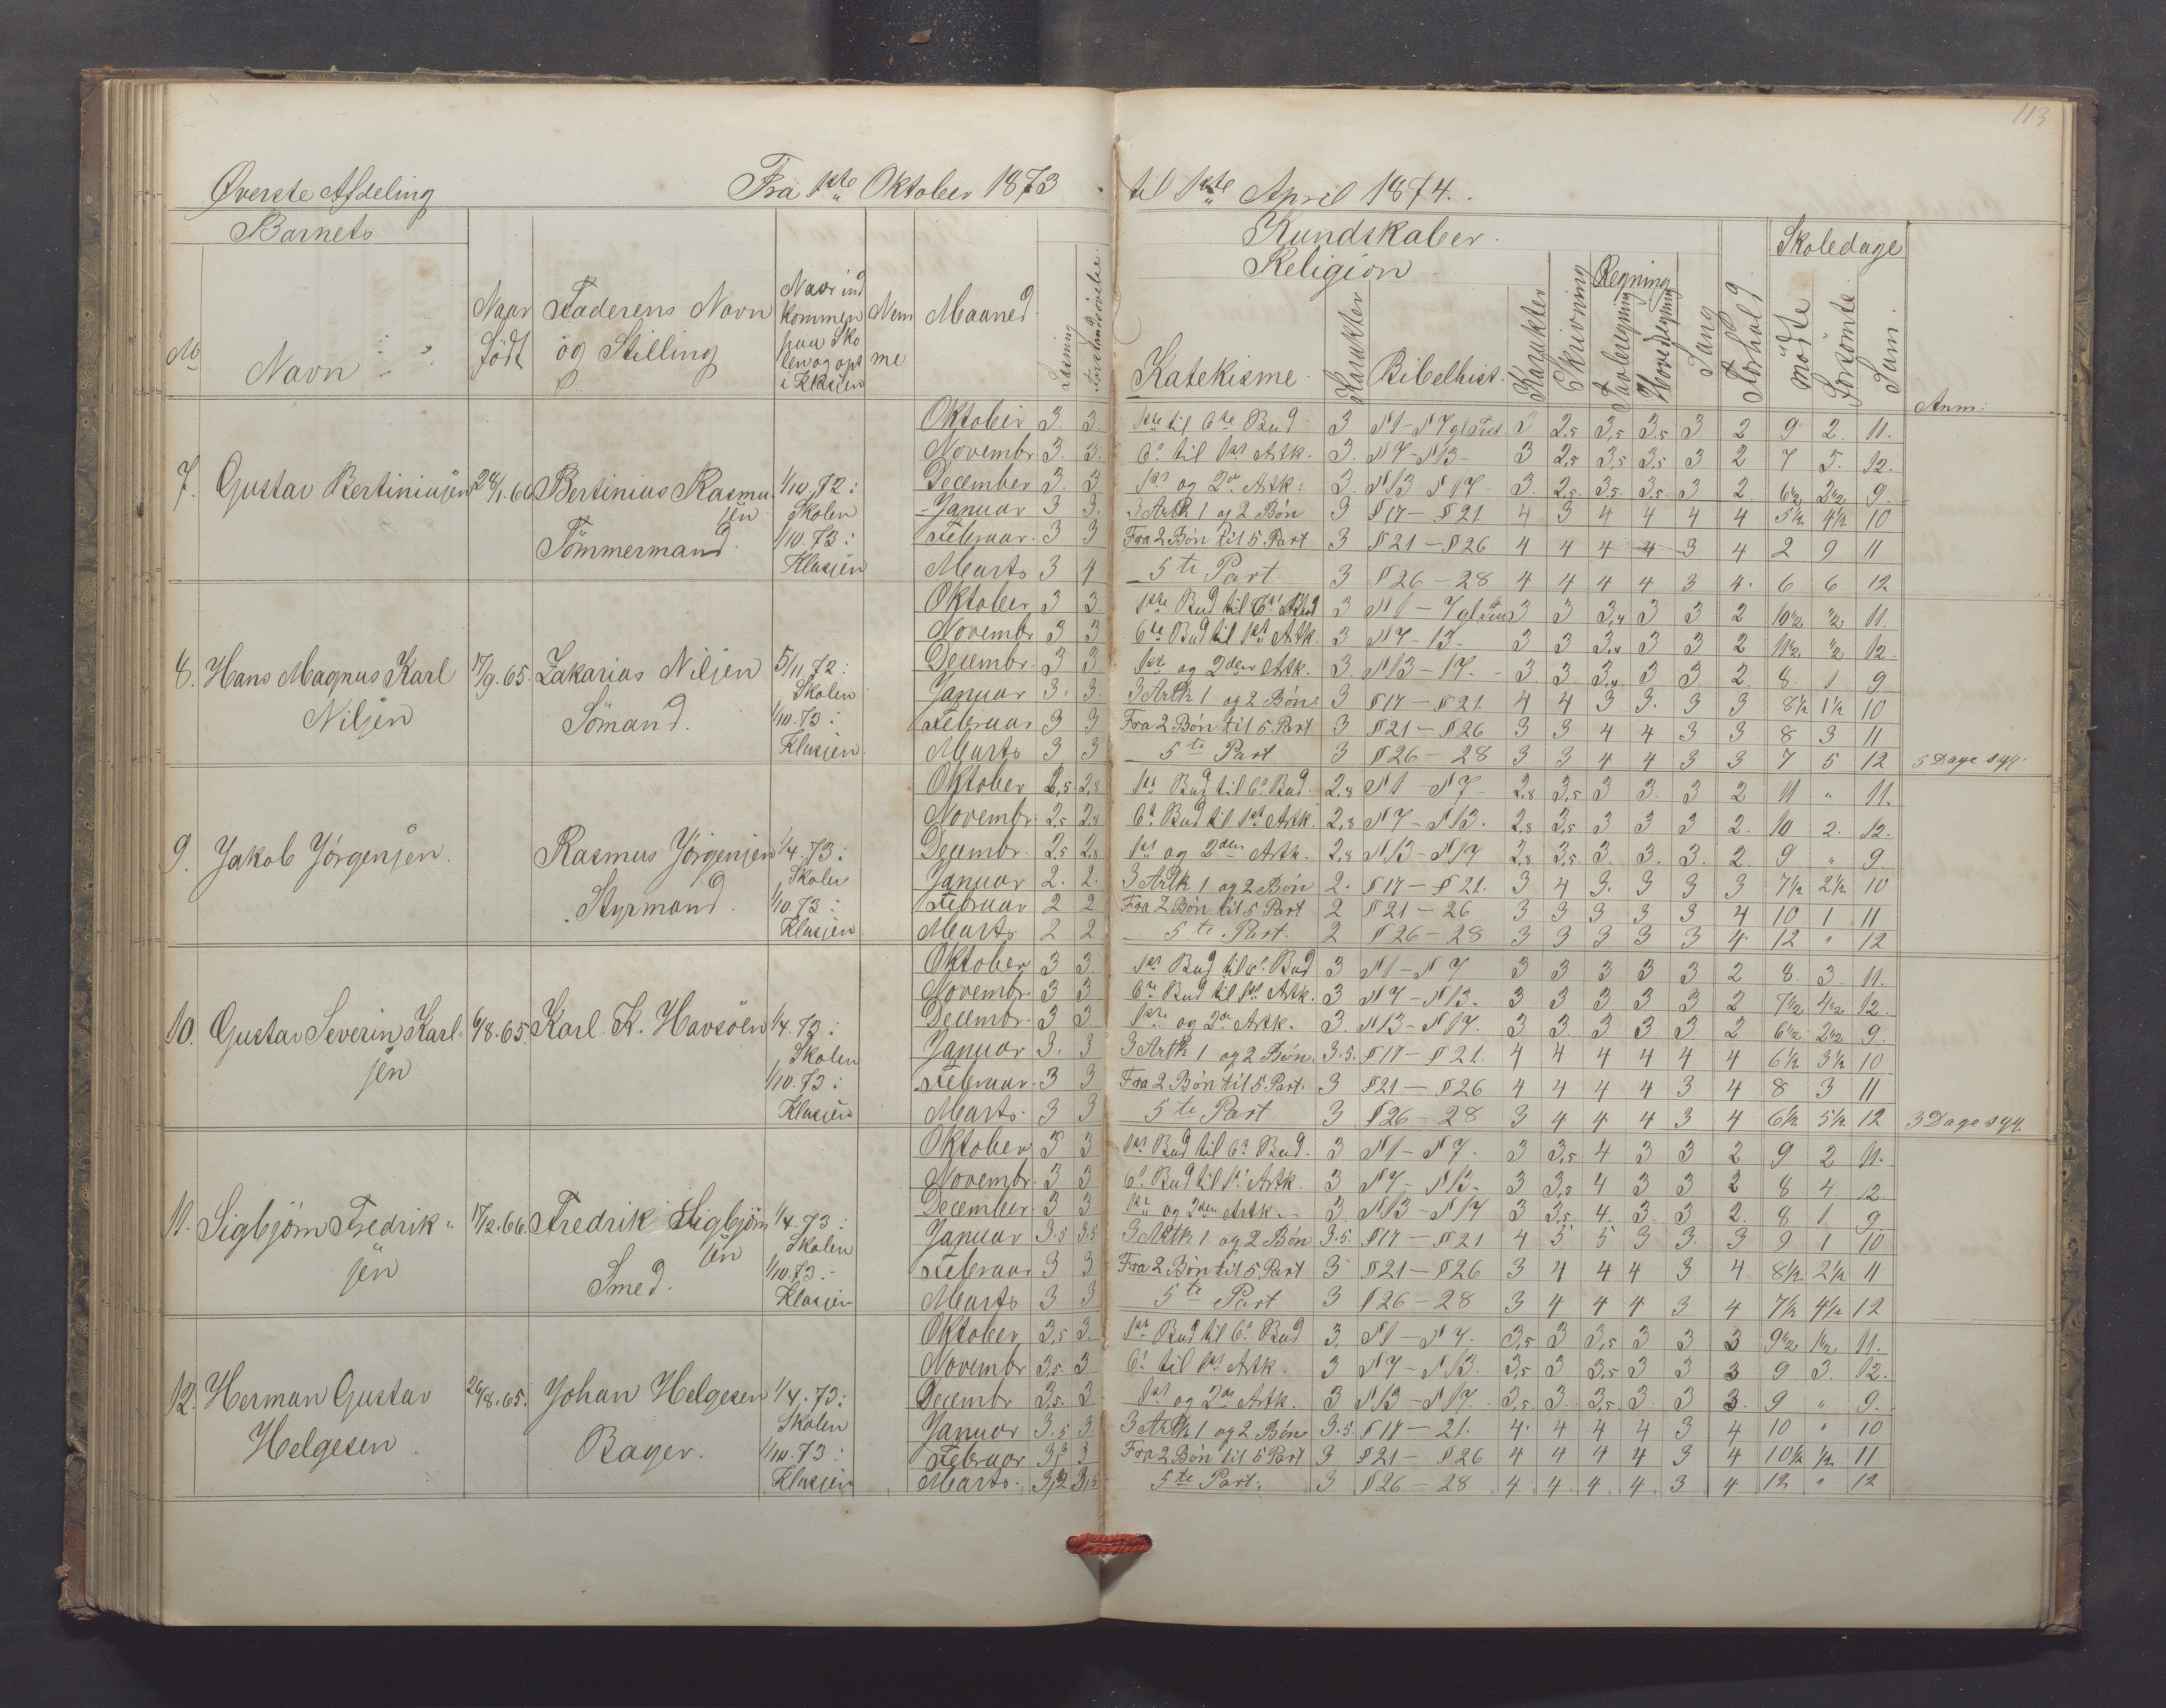 113
Øverste Afdeling Fra 1ste Oktober 1873 til 1ste April 1874.
Barnets Kundskaber. Skoledage
Religion Regning
No Navn Naar født Faderens Navn og Stilling Naar ind kommen paa Sko len og opt i Klassen Nem me Maaned Læsning Forstandsøvelse Katekisme Karakter Bibelhist. Karakter Skrivning Tavleregning Hovedregning Sang Forhold mødte Forsømte Sum. Anm:
Oktober 3. 3. 1ste til 6te Bud 3 §1-§7 3 2,5 3,5 3,5 3 2 9 2. 11.
Novembr 3. 3. 6te til 1ste Artk. 3. §7-§13- 3 2,5 3,5 3,5 3 2 7 5. 12.
7. Gustav Bertiniusen 28/1.66 Bertinius Rasmus 1/10.72: December 3. 3 1ste og 2den Artk: 3. §13-§17- 3. 2,5. 3,5. 3,5. 3 2. 6½ 2½ 9.
sen Skolen Januar 3 3. 3 Artk 1 og 2 Bön 3 §17-§21 4 3 4 4 4 4 5½ 4½ 10
Tömmermand. 1/10.73: Februar. 3 3 Fra 2 Bön til 5 Part 3 §21-§26 4 4 4 4 3 4 2 9 11
Klassen Marts 3 4 5te Part 3 §26-28 4 4 4 4 3 4. 6 6 12
Oktober 3 3. 1ste Bud til 6te Bud 3 §1-7 3 3 3,4 3 3 2 10½ ½ 11.
Novembr 3 3 6te Bud til 1ste Artk. 3 §7-13- 3 3 3,4 3 3 2 11½ ½ 12.
8. Hans Magnus Karl 17/9.65. Zakarias Nilsen 5/11.72: Decembr. 3 3 1ste og 2den Artk. 3. §13-17.- 3 3 3,4. 3 3 2. 8. 1 9
Nilsen Sömand. Skolen Januar 3. 3. 3 Artk 1 og 2 Bön. 3 §17-§21 4 4 3 3. 3 3 8½ 1½ 10
1/10.73: Februar 3 3 Fra 2 Bön til 5 Part 3 §21-§26 3 3 4 4 3 3 8 3 11
Klassen. Marts 3 3 5te Part 3 §26-28 3 3 4 4 3 3 7 5 12 5 Dage syg.
Oktober 2,5. 2,8 1ste Bud til 6te Bud. 2,8 §1-§7- 2,8 3,5 3 3. 3 2 11 " 11.
Novembr. 2,5 2,8 6te Bud til 1ste Artk. 2,8 §7-§13. 2,8 3,5 3 3 3 2. 10 2. 12.
9. Jakob Jörgensen. Rasmus Jörgensen 1/4.73: Decembr. 2,5 2,8 1ste og 2den Artk. 2,8 §13-§17 2,8 3,5 3. 3. 3. 2. 9 " 9
Styrmand. Skolen Januar 2. 2. 3 Artk 1 og 2 Bön 2. §17-§21. 3 4 3. 3 3 3 7½ 2½ 10
1/10.73: Februar 2 2 Fra 2 Bön til 5 Part 2 §21-26 3 3 3 3 3 4 10 1 11
Klassen. Marts 2 2 5te Part. 2 §26-28 3 3 3 3 3 4 12 " 12
Oktober 3 3 1ste Bud til 6te Bud 3 §1-§7 3 3 3 3 3 2 8 3. 11.
Novembr. 3 3 6te Bud til 1ste Artk. 3 §7-§13. 3 3 3 3 3 2 7½ 4½ 12.
10. Gustav Severin Karl- 6/8.65. Karl K. Havsöen 1/4.73: Decembr. 3 3 1ste og 2den Artk. 3. §13-§17. 3 3. 3 3 3 2 6½ 2½ 9.
sen Skolen Januar 3. 3 3 Artk 1 og 2 Bön. 3.5. §17-§21. 4 4 4 4 4 4 6½ 3½ 10
1/10.73: Februar. 3 3 Fra 2 Bön til 5 Part. 3 §21-§26 4 4 4 4 3 4 8 3 11
Klassen Marts. 3 3 5te Part 3 §26-28 3 4 4 4 3 4 6½ 5½ 12 3 Dage syg.
Oktober 3 3 1ste Bud til 6te Bud. 3 §1-§7. 3 3,5 4 3 3 2 9 2 11.
Novembr. 3 3 6te Bud til 1ste Artk. 3 §7-§13- 3 3,5 4 3 3 2 8 4 12.
11. Sigbjörn Fredrik- 17/12.66. Fredrik Sigbjörn 1/4.73: December. 3 3 1ste og 2den Artk.- 3. §13-§17 3 3,5. 4. 3. 3 2. 8 1. 9.
sen sen Skolen Januar 3.5 3.5 3 Artk 1 og 2 Bön 3.5. §17-§21 4 5 5 3 3. 3 9 1 10
Smed. 1/10.73. Februar 3 3 Fra 2 Bön til 5 Part 3 §21-§26 3 4 4 4 3 4 8½ 2½ 11
Klassen Marts 3 3 5te Part 3 §26-28 3 4 4 4 3 4 7½ 4½ 12
Oktober 3,5 3. 1ste Bud til 6te Bud 3. §1-§7. 3,5 3 3,5 3 3 3 9½ 1½ 11.
Novembr 3,5. 3 6te til 1ste Artk. 3 §7-§13. 3,5 3 3,5 3 3 3 9 3. 12.
12. Herman Gustav 26/8.65. Johan Helgesen 1/4.73: Decembr 3,5. 3 1ste og 2den Artk. 3 §13-§17. 3,5. 3. 3,5. 3. 3 3. 9 " 9.
Helgesen. Bager. Skolen Januar 3.5 3. 3 Artk 1 og 2 Bön 3.5. §17-21. 4. 4 4 4 3 4 10 " 10
1/10.73: Februar 3 Fra 2 Bön til 5 Part 3 §21-§26 4 4 4 4 3 4 10½ ½ 11
Klassen Marts. 5te Part. 3 §26-28 4 4 4 4 3 4 12 " 12